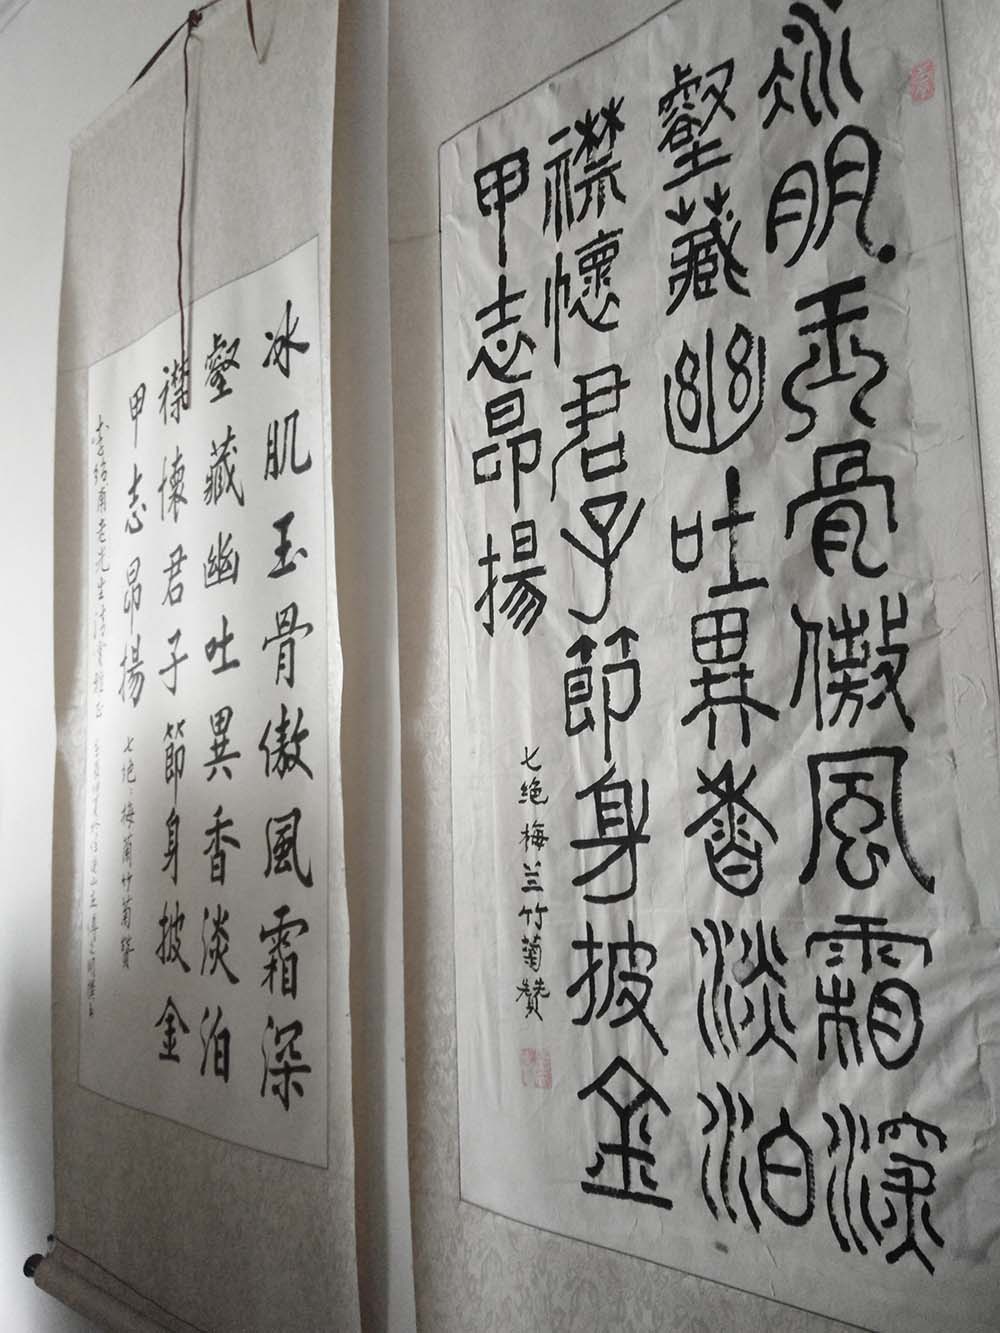 冰肌玉骨傲風霜深
壑藏幽吐異香淡泊
襟懷君子節身披金
甲志昂揚
七绝梅兰竹菊赞
冰肌玉骨傲風霜深
壑藏幽吐異香淡泊
襟懷君子節身披金
甲志昂揚
七绝梅蘭竹菊賛
老先生